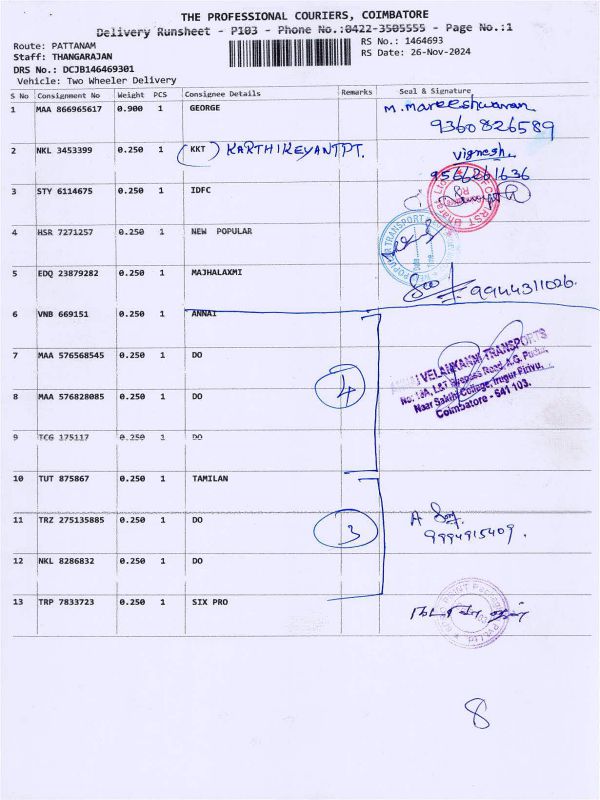 THE PROFESSIONAL COURIERS, COIMBATORE
Delivery Runsheet - P103 - Phone No.:0422-3505555 - Page No.:1
Route: PATTANAM
RS No.: 1464693
Staff: THANGARAJAN
RS Date: 26-Nov-2024
DRS No.: DCJB146469301
Vehicle: Two Wheeler Delivery
S No Consignment No Weight PCS Consignee Details Remarks Seal & Signature
1 MAA 866965617 0.900 1 GEORGE M. Mareeshwaran
9360826589
2 NKL 3453399 0.250 1 KKT KARTHIKEYAN TPT. Vignesh
9566261636
3 STY 6114675 0.250 1 IDFC
4 HSR 7271257 0.250 1 NEW POPULAR
5 EDQ 23879282 0.250 1 MAJHALAXMI
9944311026.
6 VNB 669151 0.250 1 ANNAI
VELANKANNI TRANSPORTS
7 MAA 576568545 0.250 1 DO
4
8 MAA 576828085 0.250 1 DO
Coimbatore - 641 103.
9 TCG 175117 0.250 1 DO
10 TUT 875867 0.250 1 TAMILAN
11 TRZ 275135885 0.250 1 DO 3
9994915409.
12 NKL 8286832 0.250 1 DO
13 TRP 7833723 0.250 1 SIX PRO
8